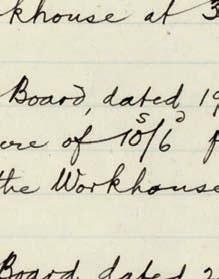 khouse at 3
Board, dated 19
re of 10s/6d f
the Workhouse
Board, dated